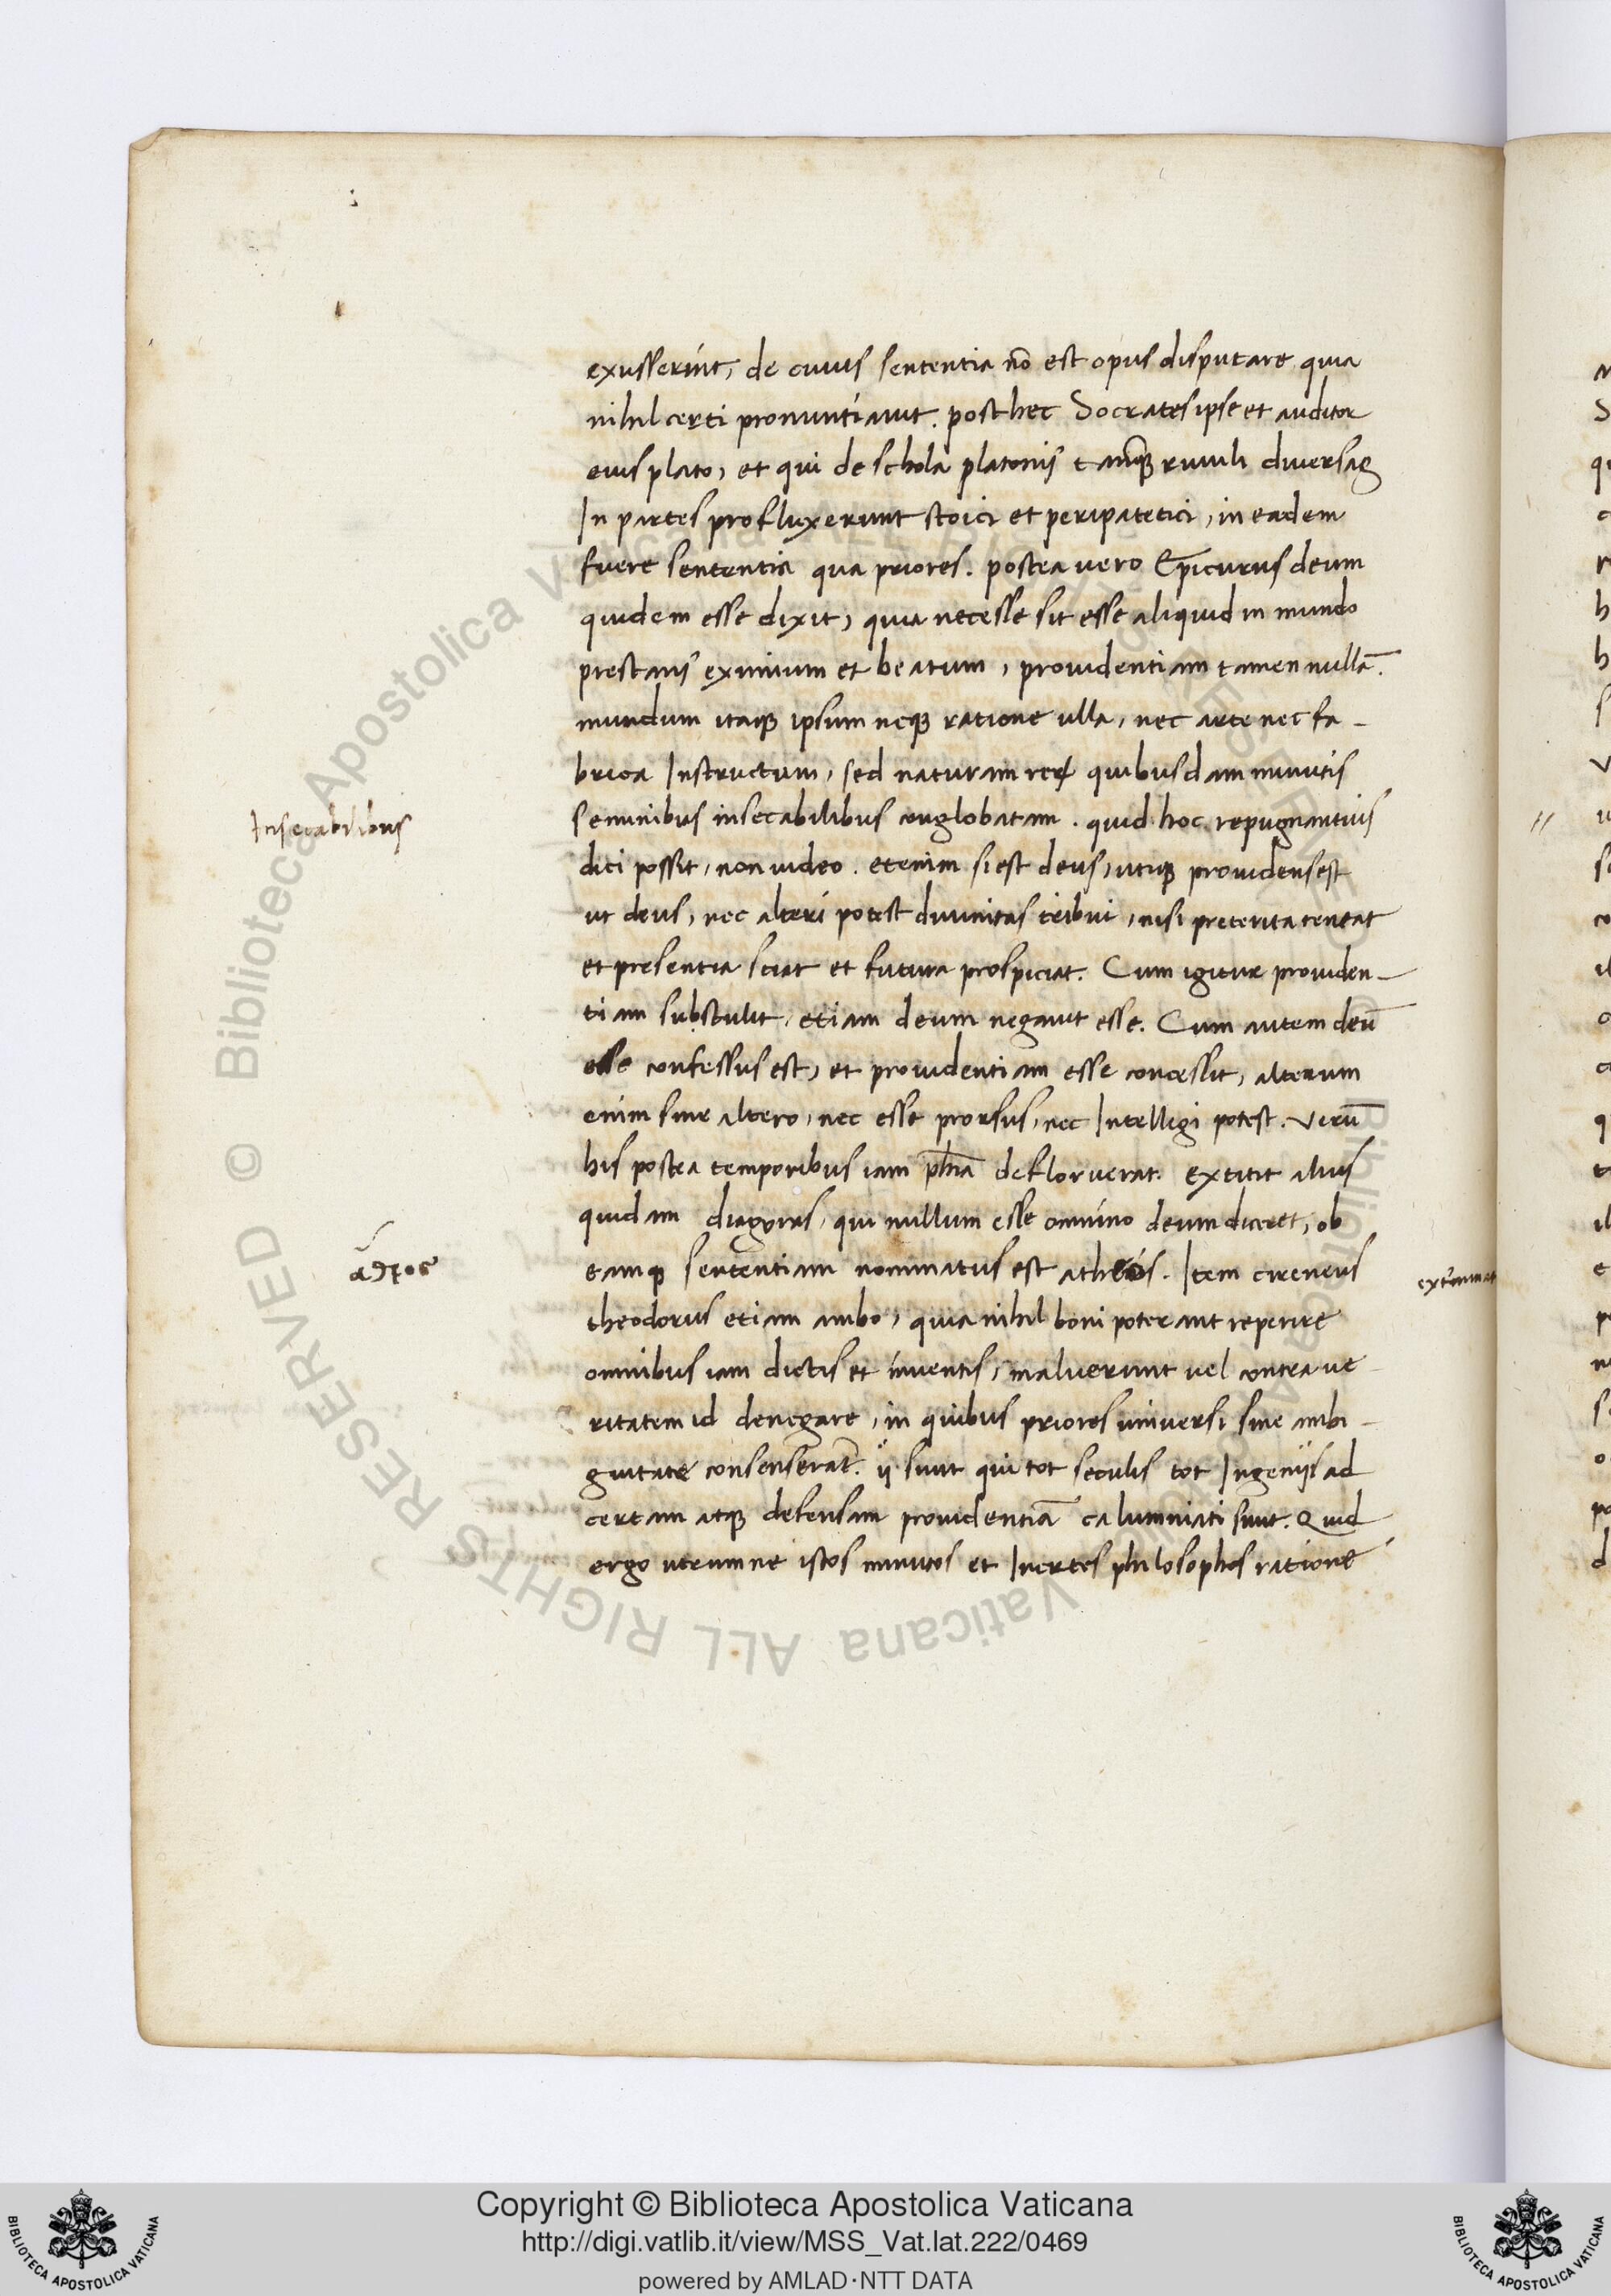 exusserint, de cuius sententia nō est opus disputare quia
nihil certi pronuntiauit. post hec Socrates ipse et auditor
eius plato, et qui de schola platonis tamq̃ riuuli diuersas
In partes profluxerunt stoici et peripatetici, in eadem
fuere sententia qua priores. postea uero Epicurus deum
quidem esse dixit, quia necesse sit esse aliquid in mundo
prestans eximium et beatum, prouidentiam tamen nullā.
mundum itaqꝫ ipsum neqꝫ ratione ulla, nec arte nec fa-
brica Instructum, sed naturam reꝝ quibusdam minutis
Insecabilibus
seminibus insecabilibus conglobatam. quid hoc repugnantius
dici possit, non uideo. etenim si est deus, utiqꝫ prouidens est
ut deus, nec alteri potest diuinitas tribui, nisi preterita teneat
et presentia sciat et futura prospiciat. Cum igitur prouiden-
tiam substulit, etiam deum negauit esse. Cum autem deū
esse confessus est, et prouidentiam esse concessit, alterum
enim sine altero, nec esse prorsus, nec Intelligi potest. Verū
his postea temporibus iam phīa defloruerat. extitit alius
quidam diagoras, qui nullum esse omnino deum diceret, ob
ἄθεος
eamqꝫ sententiam nominatus est atheos. Item cireneus
theodorus etiam ambo, quia nihil boni poterant reperire
omnibus iam dictis et inuentis, maluerunt uel contra ue
ritatem id denegare, in quibus priores uniuersi sine ambi-
guitate consenserāt. ij sunt qui tot seculis tot Ingenijs ad
certam atqꝫ defensam prouidentiā calumniati sunt. Quid
ergo utrumne istos minutos et Inertes philosophos ratione
Copyright © Biblioteca Apostolica Vaticana
http://digi.vatlib.it/view/MSS_Vat.lat.222/0469
powered by AMLAD·NTT DATA
BIBLIOTECA APOSTOLICA VATICANA
BIBLIOTECA APOSTOLICA VATICANA
© Biblioteca Apostolica Vaticana ALL RIGHTS RESERVED
© Biblioteca Apostolica Vaticana ALL RIGHTS RESERVED